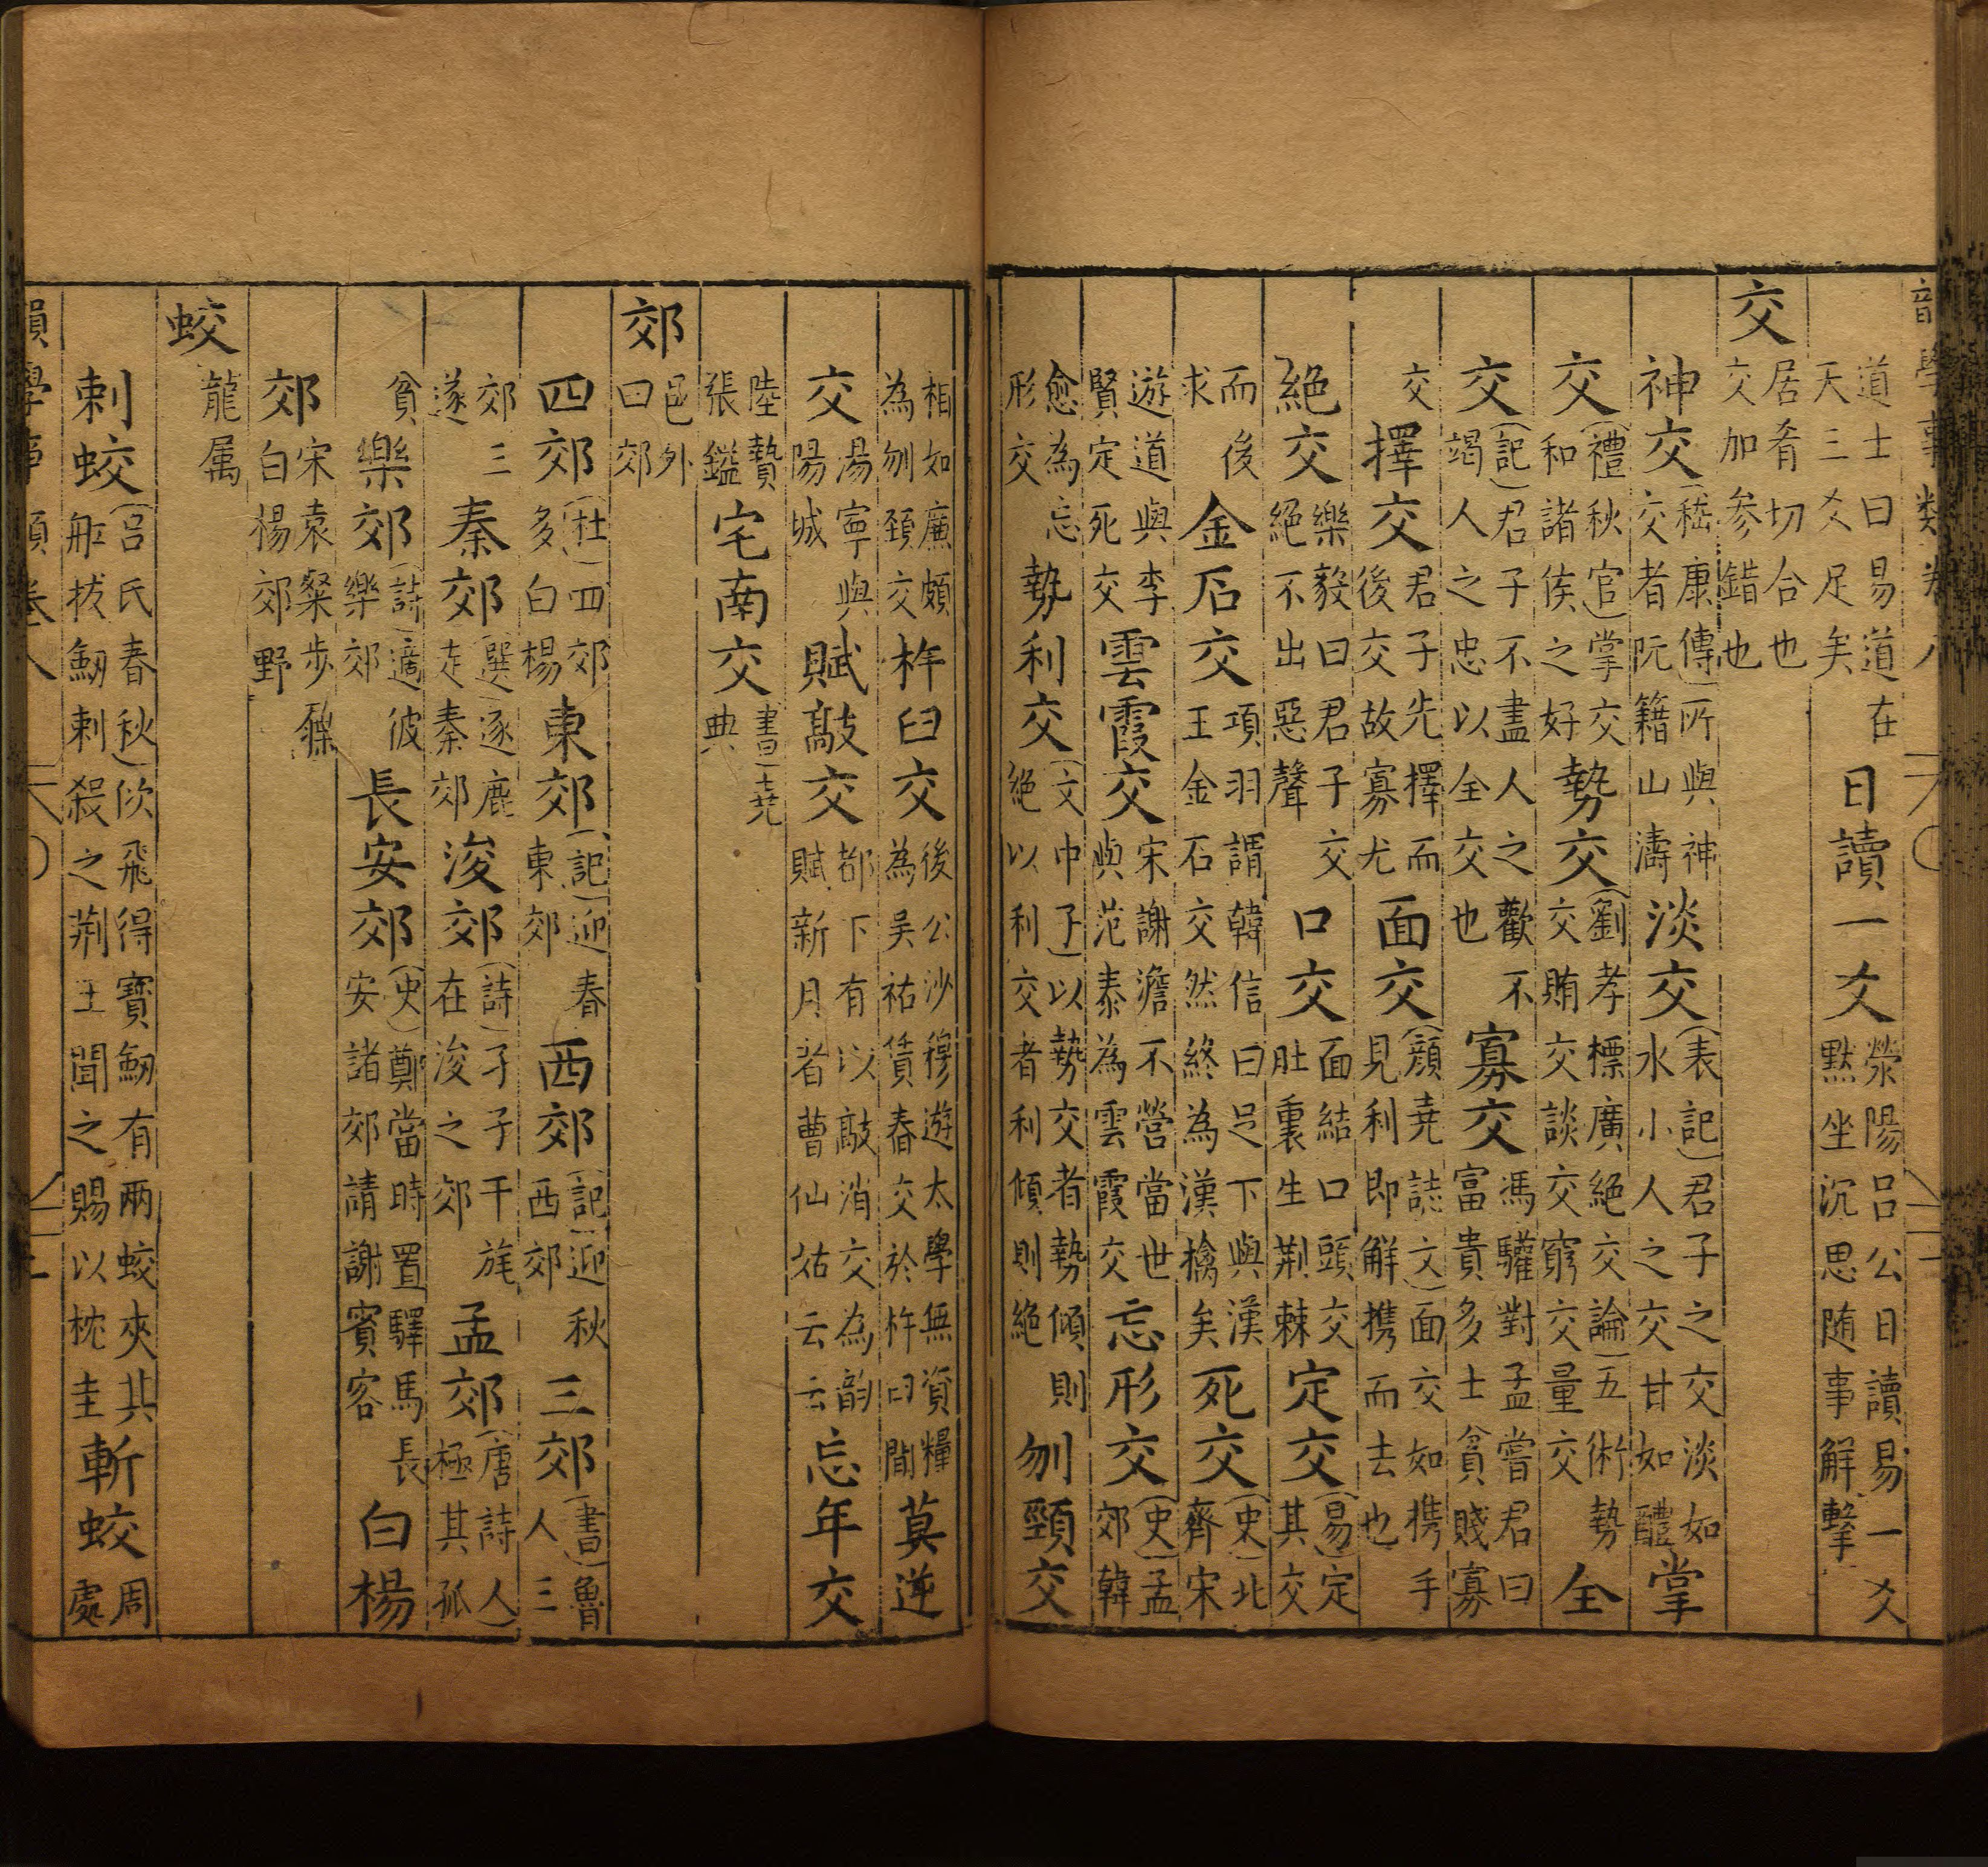 道士曰易道在天三爻足矣日讀一爻滎陽呂公日讀易一爻默坐沉思随事解擊
交居肴切合也交加参錯也
神交(嵇康傳)所與神交者阮籍山濤淡交(表記)君子之交淡如水小人之交甘如醴掌
交(禮秋官)掌交和諸侯之好勢交(劉孝標廣絕交論)五術勢交賄交談交窮交量交全
交(記)君子不盡人之歡不竭人之忠以全交也寡交馮驩對孟嘗君曰富貴多士貧賤寡
交擇交君子先擇而後交故寡尤面交(顏堯誌文)面交如携手見利即解携而去也
絕交樂毅曰君子交絕不出惡聲口交面結口頭交肚裏生荆棘定交(易)定其交
而後求金石交項羽謂韓信曰足下與漢王金石交然終為漢擒矣死交(史)北齊宋
遊道與李賢定死交雲霞交宋謝澹不營當世與范泰為雲霞交忘形交(史)孟郊韓
愈為忘形交勢利交(文中子)以勢交者勢傾則絕以利交者利傾則絕刎頸交
相如廉頗為刎頸交杵臼交後公沙穆遊太學無資糧為吳祐賃舂交於杵臼間莫逆
交湯寧與陽城賦敲交都下有以敲消交為韵賦新月者曹仙姑云云忘年交
陸贄張鎰宅南交(書)堯典
郊邑外曰郊
四郊(杜)四郊多白楊東郊(記)迎春東郊西郊(記)迎秋西郊三郊(書)魯人三
郊三遂秦郊(選)逐鹿走秦郊浚郊(詩)孑孑干旄在浚之郊孟郊(唐詩人)極其孤
貧樂郊(詩)適彼樂郊長安郊(史)鄭當時置驛馬長安諸郊請謝賓客白楊
郊宋袁粲步屧白楊郊野
蛟龍属
刺蛟(呂氏春秋)佽飛得寶劒有兩蛟夾其船拔劒刺殺之荆王聞之賜以枕圭斬蛟周處
韻學事類卷八